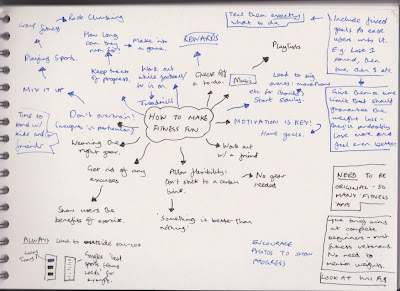 Rock Climbing
Core fitness
How long
can they
run for?
Make into
a game.
REWARDS
Tell them exactly
what to do.
Include forced
goals to ease
users into it.
E.g. Lose 1
pound, then
two, then 5 etc.
Playlists
Playing Sports.
Keep track of
progress.
Work out
while football/
tv is on
Check off
a to-do.
Music
Lead to big
events: marathons
etc for charities
Start slowly.
MIX IT UP
Treadmill
Give them a time
limit that should
guarantee one
weight loss -
they'll probably
lose more and
feel even better
Time to
bond w/
kids and/or
friends
Don't overtrain!
(weights in particular)
HOW TO MAKE
FITNESS FUN
MOTIVATION IS KEY!
Have goals.
Wearing the
right gear.
Work out
w/ a friend
Get rid of any
excuses
Allow flexibility:
Don't stick to a certain
time.
No gear
needed
NEED TO BE
ORIGINAL - SO
MANY FITNESS
APPS
Show users the
benefits of exercise.
'Something is better than
nothing'
ALWAYS lead to outside sources
ENCOURAGE
PHOTOS TO SHOW
PROGRESS
aiming
at complete
beginners - not
fitness veterans.
No need to
mention weights.
LOOK AT Wii Fit